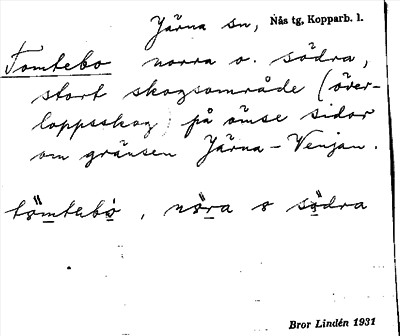 Järna sn, Nås tg, Kopparb. l.
Tomtebo norra o. södra,
stort skogsområde (över-
loppsskog) på ömse sidor
om gränsen Järna-Venjan.
tömtebò, nö̀ra o sö̀dra
Bror Lindén 1931